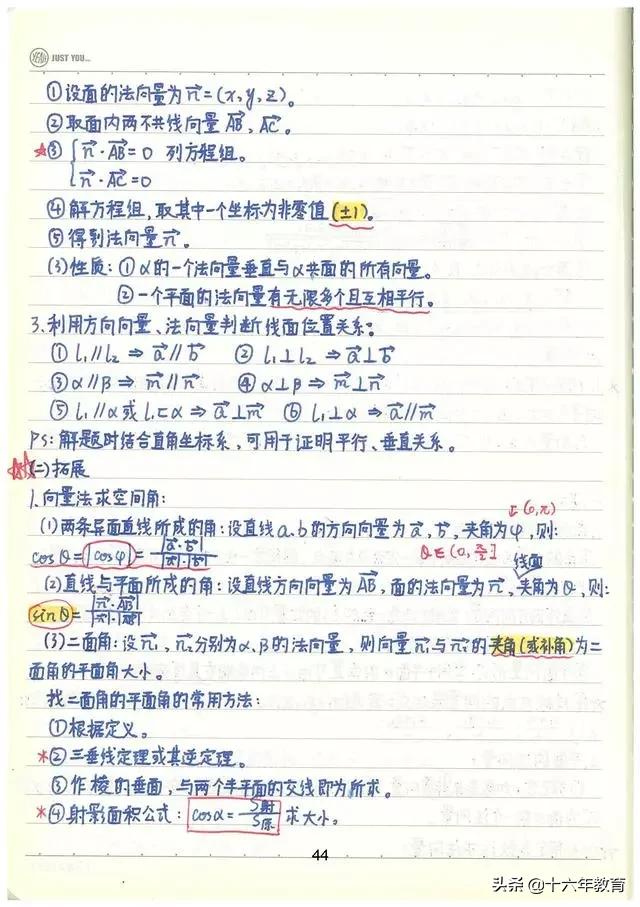 YEAH JUST YOU...
①设面的法向量为n⃗=(x,y,z)。
②取面内两不共线向量AB⃗,AC⃗。
★③{n⃗·AB⃗=0 列方程组。
n⃗·AC⃗=0
④解方程组,取其中一个坐标为非零值(±1)。
⑤得到法向量n⃗。
(3)性质:①α的一个法向量垂直与α共面的所有向量。
②一个平面的法向量有无限多个且互相平行。
3.利用方向向量、法向量判断线面位置关系:
①l₁∥l₂⇒a⃗∥b⃗ ②l₁⊥l₂⇒a⃗⊥b⃗
③α∥β⇒m⃗∥n⃗ ④α⊥β⇒m⃗⊥n⃗
⑤l₁∥α或l₁⊂α⇒a⃗⊥m⃗ ⑥l₁⊥α⇒a⃗∥m⃗
PS:解题时结合直角坐标系,可用于证明平行、垂直关系。
(二)拓展
1.向量法求空间角:
(0,π)
(1)两条异面直线所成的角:设直线a.b的方向向量为a⃗,b⃗,夹角为φ,则:
cosθ=|cosφ|=|a⃗·b⃗|/|a⃗|·|b⃗| θ∈(0,π/2]
线面
(2)直线与平面所成的角:设直线方向向量为AB⃗,面的法向量为n⃗,夹角为θ,则:
sinθ=|n⃗·AB⃗|/|n⃗|·|AB⃗|
(3)二面角:设n⃗₁,n⃗₂分别为α,β的法向量,则向量n⃗₁与n⃗₂的夹角(或补角)为二
面角的平面角大小。
找二面角的平面角的常用方法:
①根据定义。
*②三垂线定理或其逆定理。
③作棱的垂面,与两个半平面的交线即为所求。
*④射影面积公式:cosα=S射/S原 求大小。
44
头条@十六年教育